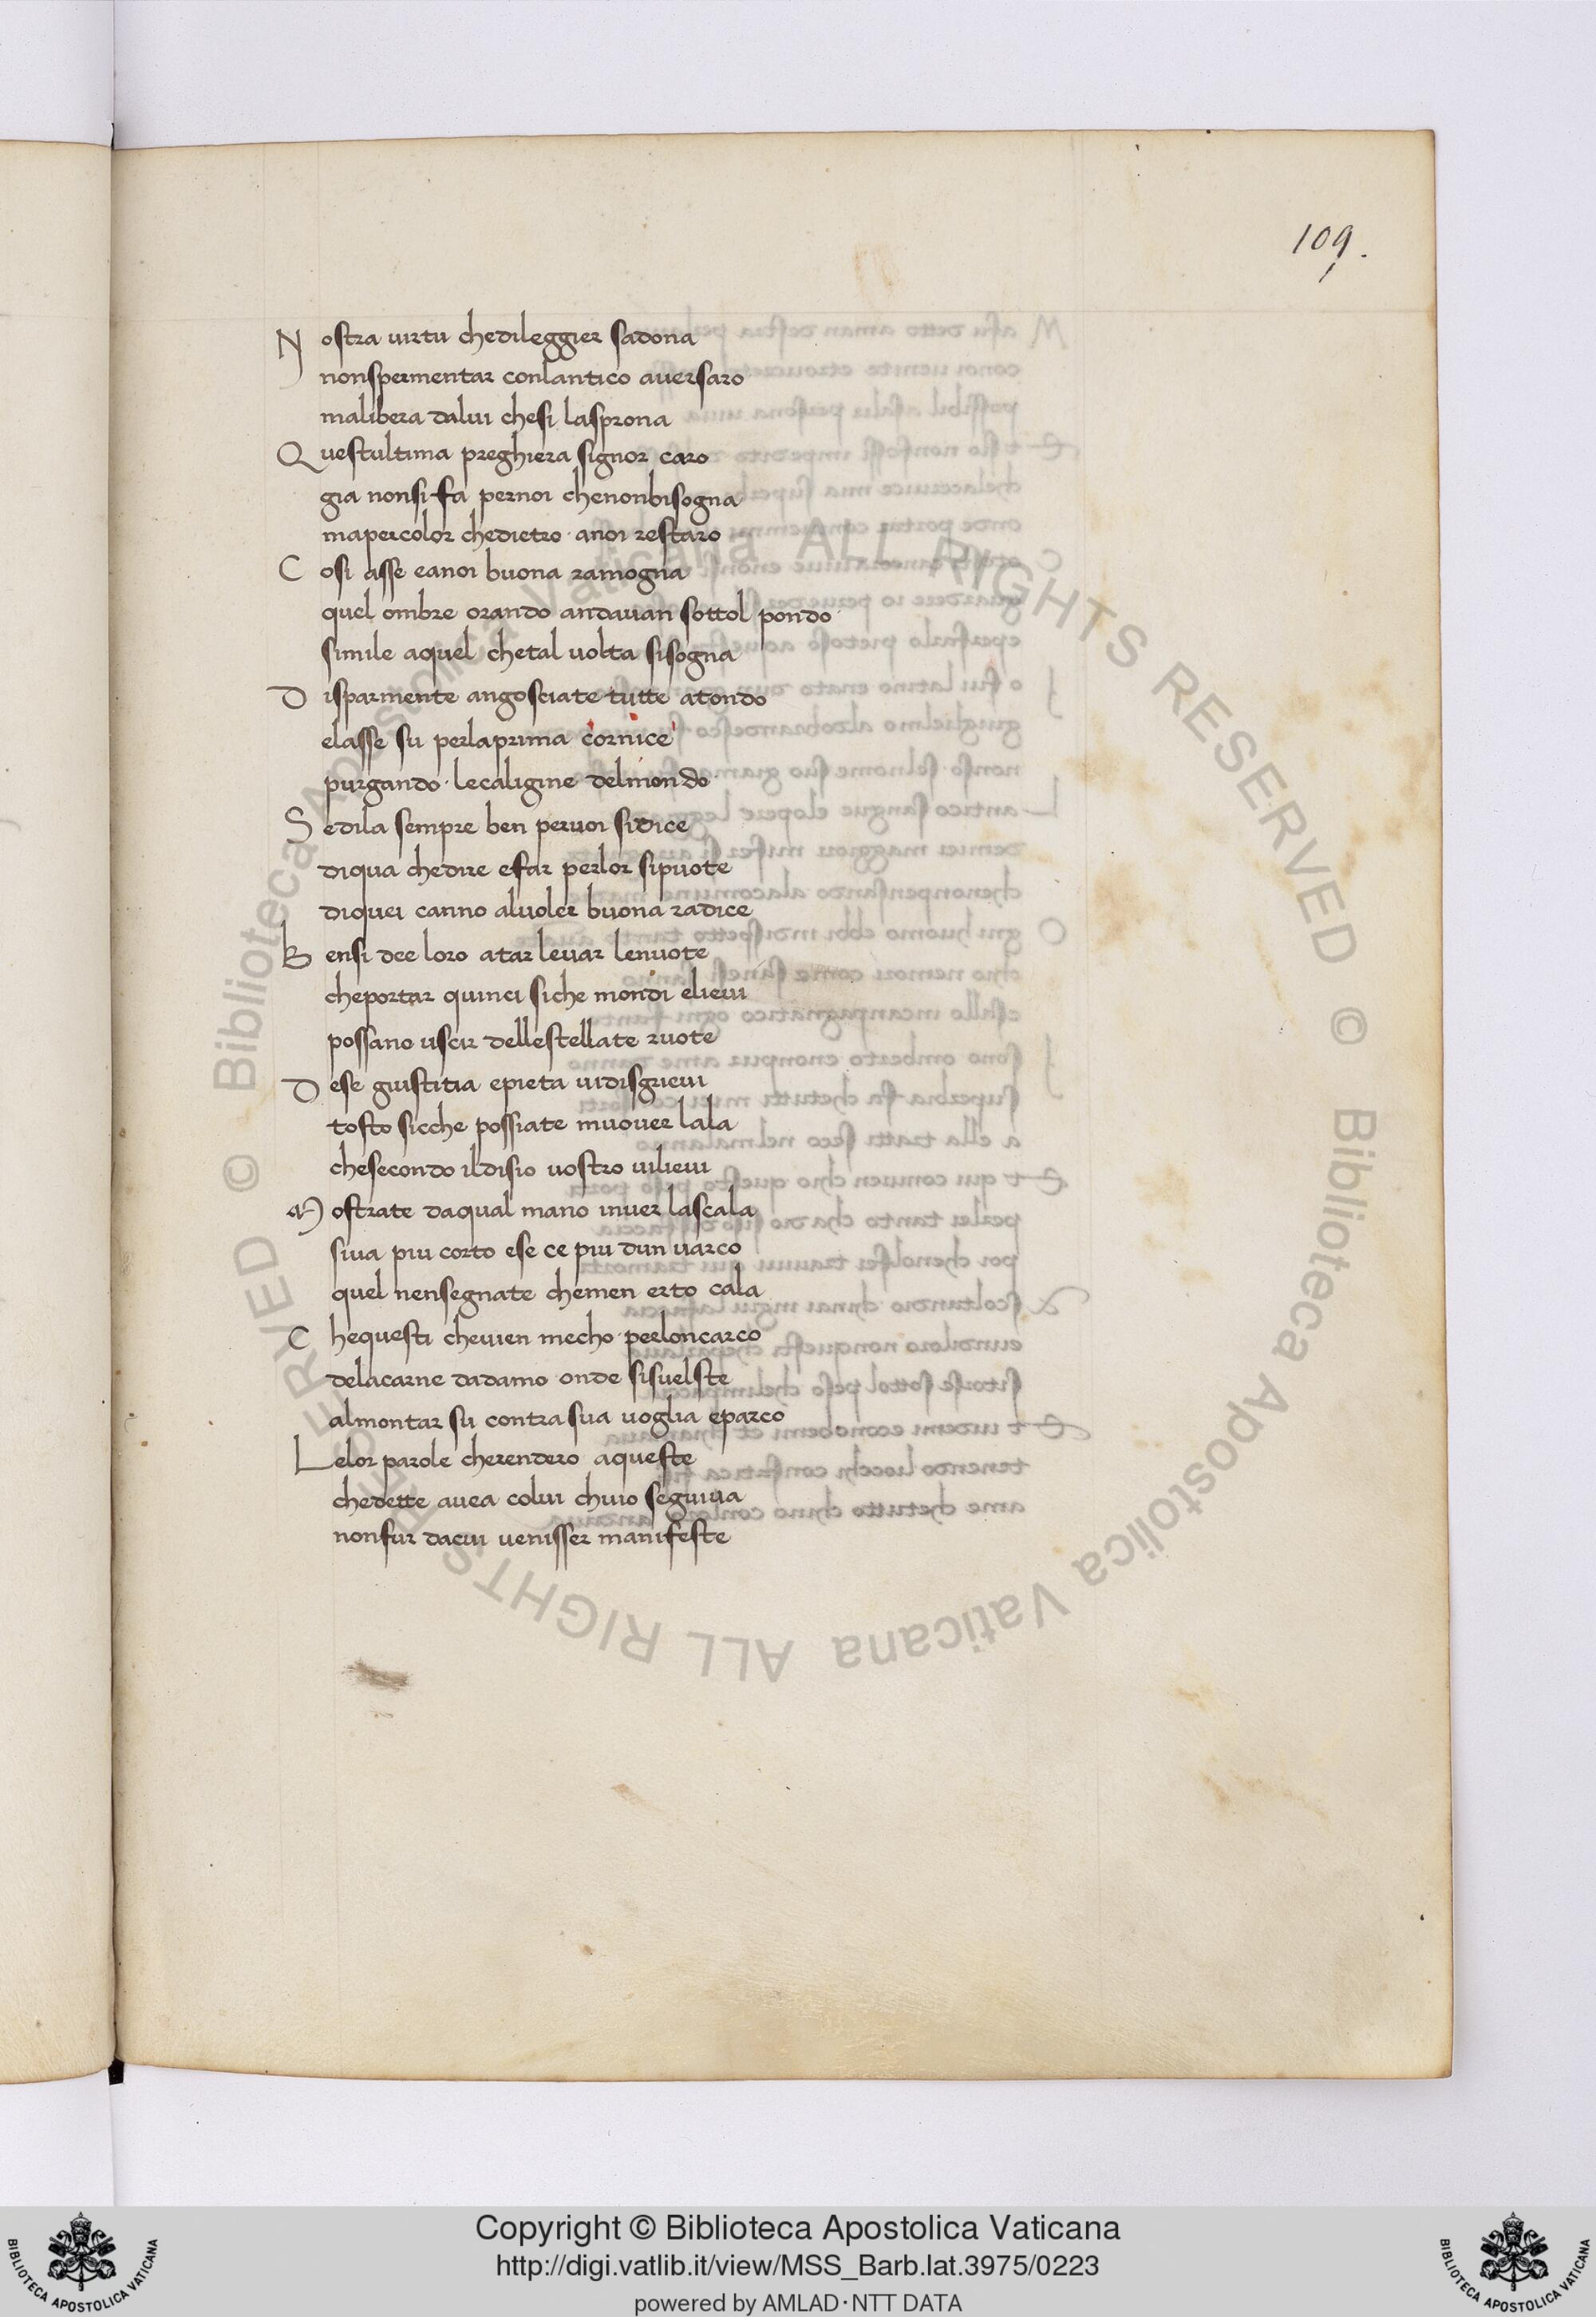 109.
Nostra uirtu chedileggier sadona
nonspermentar conlantico auersaro
malibera dalui chesi lasprona
Questultima preghiera signor caro
gia nonsi fa pernoi chenonbisogna
mapercolor chedietro anoi restaro
Cosi asse eanoi buona ramogna
quel ombre orando andauan sottol pondo
simile aquel chetal uolta sisogna
Disparmente angosciate tutte atondo
elasse su perlaprima cornice
purgando lecaligine delmondo
Sedila sempre ben pernoi sidice
diqua chedire efar perlor sipuote
diquei canno aluoler buona radice
Bensi dee loro atar leuar lenuote
cheportar quinci siche mondi elieui
possano uscir dellestellate ruote
Dese giustitia epieta uidisgrieui
tosto sicche possiate muouer lala
chesecondo ildisio uostro uilieui
Mostrate daqual mano inuer lascala
siua piu corto ese ce piu dun uarco
quel nensegnate chemen erto cala
Chequesti cheuien mecho perloncarco
delacarne dadamo onde sisuelste
almontar su contra sua uoglia eparco
Lelor parole cherendero aqueste
chedette auea colui chuio seguiua
nonfur dacui uenisser manifeste
© Biblioteca Apostolica Vaticana ALL RIGHTS RESERVED © Biblioteca Apostolica Vaticana ALL RIGHTS RESERVED
Copyright © Biblioteca Apostolica Vaticana
http://digi.vatlib.it/view/MSS_Barb.lat.3975/0223
powered by AMLAD·NTT DATA
BIBLIOTECA APOSTOLICA VATICANA
BIBLIOTECA APOSTOLICA VATICANA